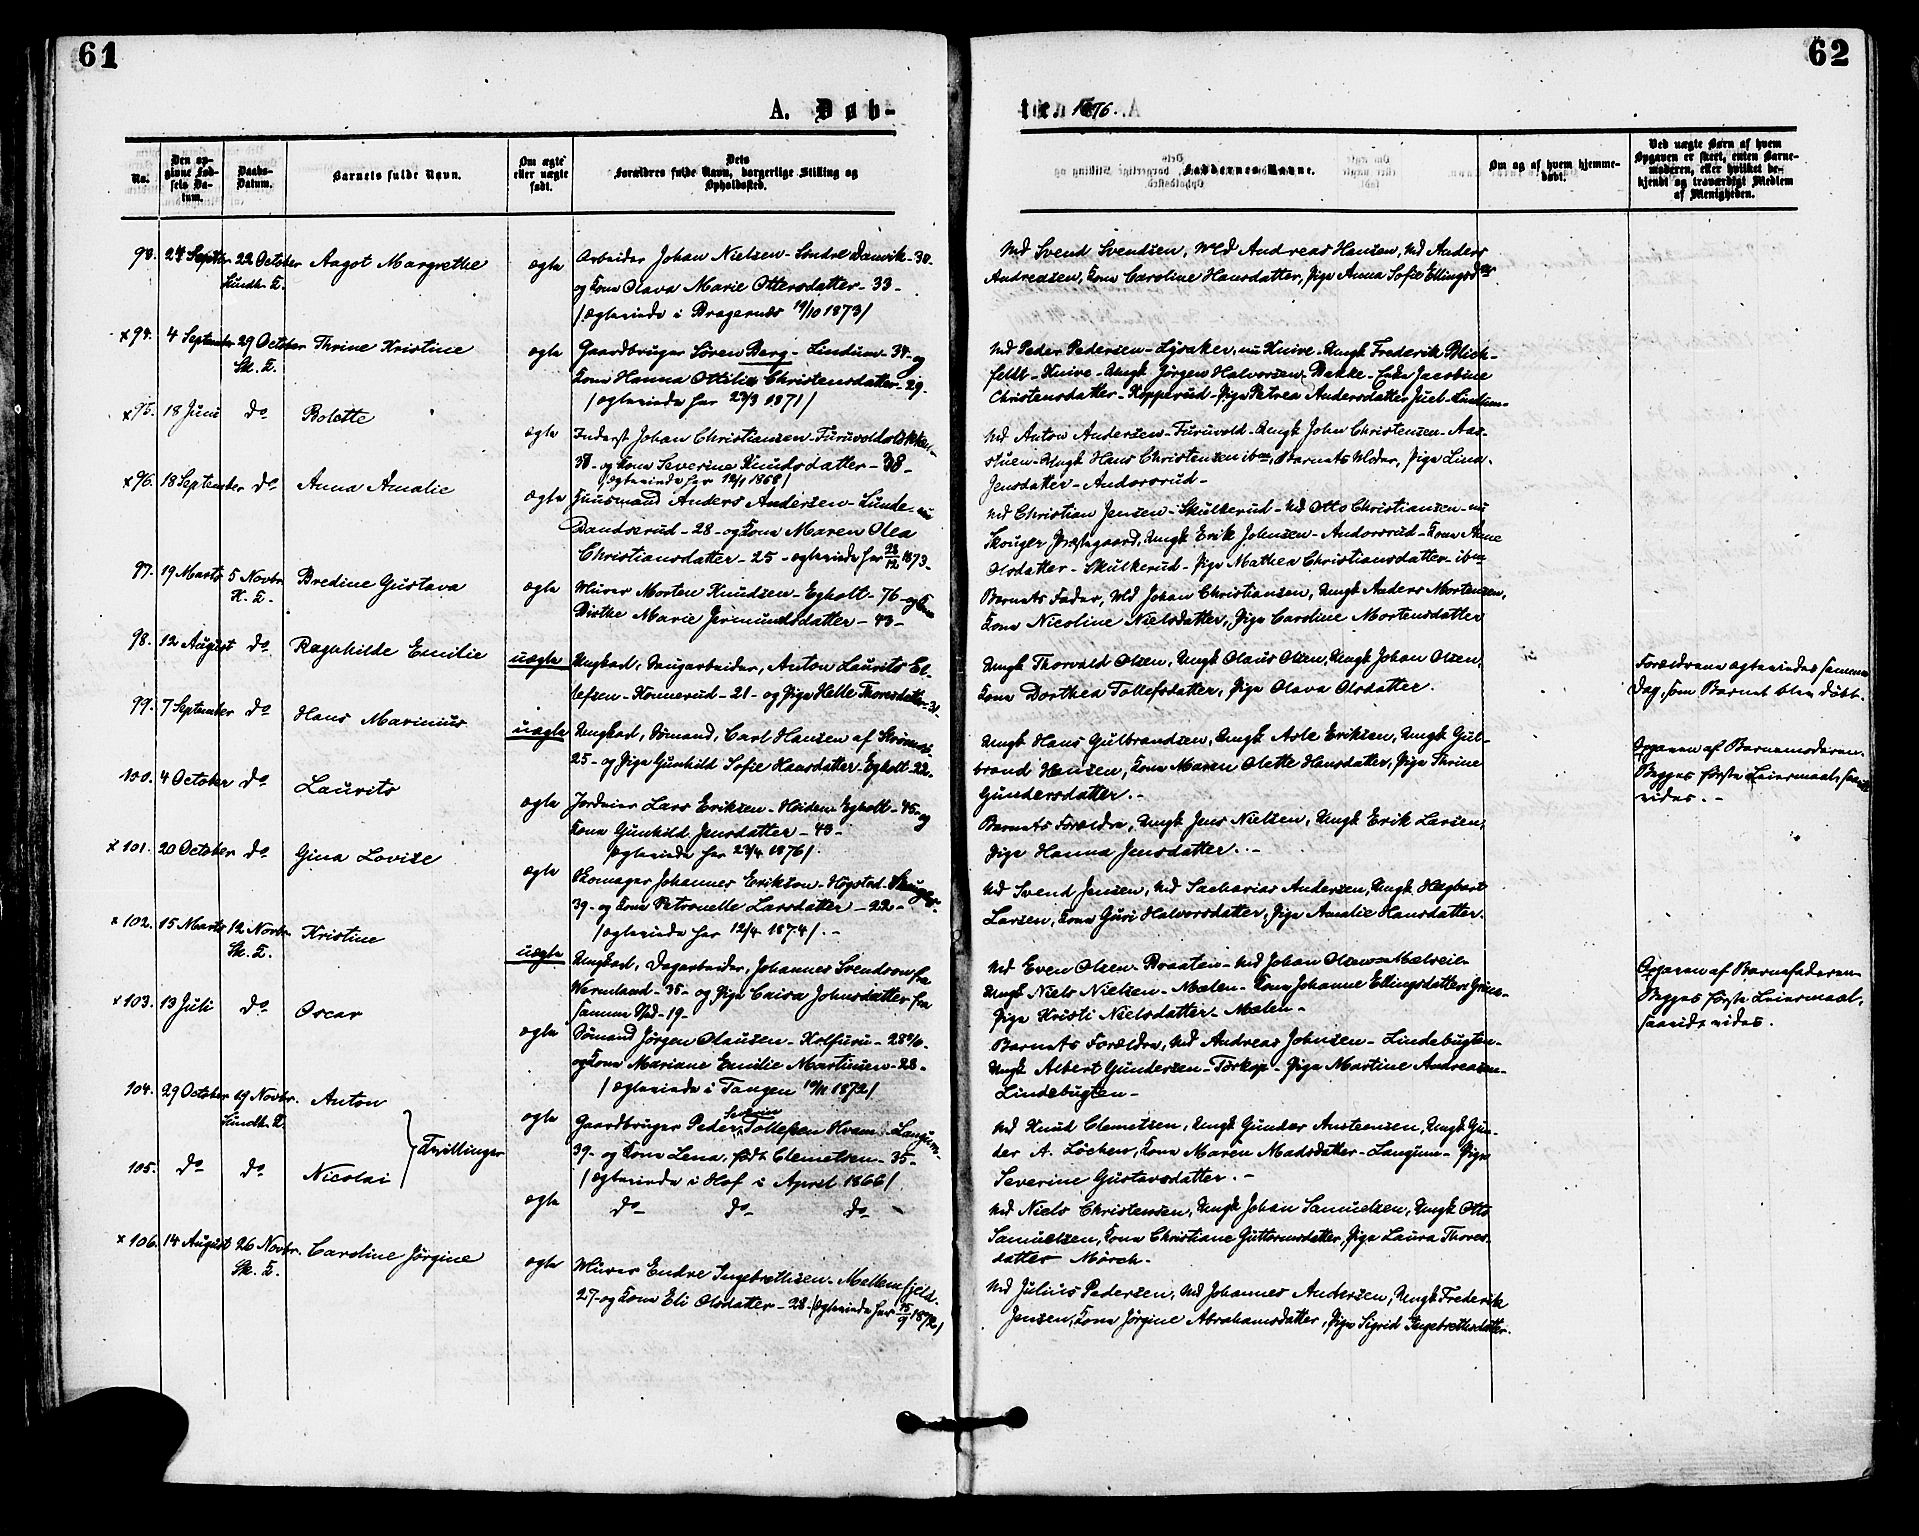 61
A. Døb-
No.
Den opgivne Fødsels Datum.
Daabs-Datum.
Barnets fulde Navn.
Om ægte eller uægte født.
Dets Forældres fulde Navn, borgerlige Stilling og Opholdssted.
24 Septbr 22 October Aagot Margrethe ægte Arbeider Johan Nielsen - Søndre Danvik - 30 -
og Kone Olava Marie Ottersdatter - 33 -
/ægteviede i Bragernæs 19/10 1873/
x 94. 4 September 29 October Thrine Kristine ægte Gaardbruger Søren Berg - Lindum - 34 - og
Sk. K. Kone Hanna Ottilia Christensdatter - 29 -
/ægteviede her 23/3 1871/
x 95. 18 Juni do Bolette ægte Inderst Johan Christiansen - Furuvoldsløkken -
38 - og Kone Severine Knudsdatter - 38 -
/ægteviede her 12/1 1868/
x 96. 18 September do Anna Amalie ægte Huusmand Anders Andersen - Lunde - nu
Dandserud - 28 - og Kone Maren Olea
Christiansdatter - 25 - ægteviede her 28/12 1873 -
97. 19 Marts 5 Novbr. Bredine Gustava ægte Murer Morten Knudsen - Egholt - 76 - og Kone
K. K. Birthe Marie Jermundsdatter - 43 -
98. 12 August do Ragnhilde Emilie uægte Ungkarl, Saugarbeider, Anton Laurits El-
lefsen - Konnerud - 21 - og Pige Helle Thoresdatter - 31 -
99. 7 September do Hans Marinius uægte Ungkarl, Sømand, Carl Hansen af Strømsø
25 - og Pige Gunhild Sofie Hansdatter - Egholt - 22 -
100. 4 October do Laurits ægte Jordeier Lars Eriksen - Heiden Egholt - 45 - og
Kone Gunhild Jensdatter - 43 -
/ægteviede her 23/4 1876/
x 101. 20 October do Gina Lovise ægte Skomager Johannes Erikson - Hogstad - Skouger
39 - og Kone Petronelle Larsdatter - 22 -
/ægteviede her 12/4 1874/ -
x 102. 15 Marts 12 Novbr. Kristine uægte Ungkarl, Dagarbeider, Johannes Svendson fra
Sk. K. Wermland - 35 - og Pige Caisa Johnsdatter fra
samme Sted - 19 -
x 103. 13 Juli do Oscar ægte Sømand Jørgen Olausen - Kolfuru - 28 5/6 -
og Kone Mariane Emilie Martinsen - 28 -
/ægteviede i Tangen 10/11 1872/
104. 29 October 19 Novbr. Anton ægte Gaardbruger Peder Severin Tollefsen Hvam - Langum -
Sundh. K. Tvillinger 39 - og Kone Lena, født Clemetsen - 35 -
/ægteviede i Hof i April 1866/
105. do do Nicolai ægte do do do
x 106. 14 August 26 Novbr. Caroline Jørgine ægte Murer Endre Ingebrethsen - Mellemfjeld -
Sk. K. 27 - og Kone Eli Olsdatter - 28 - /ægteviede her 15/9 1872/
62
te. 1876.
Faddernes Navne.
Om og af hvem hjemmedøbt.
Ved uægte Børn af hvem Opgaven er skeet, enten Barnemoderen, eller hvilket bekjendt og troværdigt Medlem af Menigheden.
Md Svend Svendsen, Md Andreas Hansen, Md Anders
Andreasen, Kone Caroline Hansdatter, Pige Anna Sofie Ellingsdtr
Md Peder Pedersen - Lysaker, nu Knive - Ungk Frederik Blich-
feldt - Knive - Ungk Jørgen Halvorsen Bakke - Enke Jacobine
Christensdatter - Kopperud - Pige Petrea Andersdatter Juel - Lindum -
Md Anton Andersen - Furuvold - Ungk John Christensen - Aas-
stuen - Ungk Hans Christensen ibm, Barnets Moder, Pige Lina
Jensdatter - Andorsrud -
Md Christian Jensen - Skulkerud - Md Otto Christiansen - nu
Skouger Præstegaard, Ungk Erik Johnsen - Andorsrud - Kone Anne
Olsdatter - Skulkerud - Pige Mathea Christiansdatter - ibm
Barnets Fader, Md Johan Christiansen, Ungk Anders Mortensen,
Kone Nicoline Nielsdatter, Pige Caroline Mortensdatter
Ungk Thorvald Olsen, Ungk Olaus Olsen, Ungk Johan Olsen,
Kone Dorthea Tollefsdatter, Pige Olava Olsdatter.
Forældrene ægteviedes samme
Dag, som Barnet blev døbt.
Ungk Hans Gulbrandsen, Ungk Asle Eriksen, Ungk Gul-
brand Hansen, Kone Maren Olette Hansdatter, Pige Thrine
Gundersdatter. -
Opgaven af Barnemoderen.
Begges første Leiermaal, saavidt
vides. -
Barnets Forældre, Ungk Jens Nielsen, Ungk Erik Larsen,
Pige Hanna Jensdatter. -
Md Svend Jensen, Md Sacharias Andersen, Ungk Hagbart
Larsen, Kone Guri Halvorsdatter, Pige Amalie Hansdatter.
Md Even Olsen - Braaten - Md Johan Olsen - Mælveie -
Ungk Niels Nielsen - Mælen - Kone Johanne Ellingsdatter
Pige Kristi Nielsdatter - Mælen -
Opgaven af Barnefaderen -
Begges første Leiermaal,
saavidt vides.
Barnets Forældre, Md Andreas Johnsen - Lindebugten -
Ungk Albert Gundersen - Torkop - Pige Martine Andreasen -
Lindebugten -
Md Knud Clemetsen, Ungk Gunder Austeensen, Ungk Gun-
der A. Løchen, Kone Maren Madsdatter - Langum - Pige
Severine Gustavsdatter. -
Md Niels Christensen, Ungk Johan Samuelsen, Ungk Otto
Samuelsen, Kone Christiane Guttormsdatter, Pige Laura Thores-
datter Mørch -
Md Julius Pedersen, Md Johannes Andersen, Ungk Frederik
Jensen, Kone Jørgine Abrahamsdatter, Pige Sigrid Ingebrethsdatter.